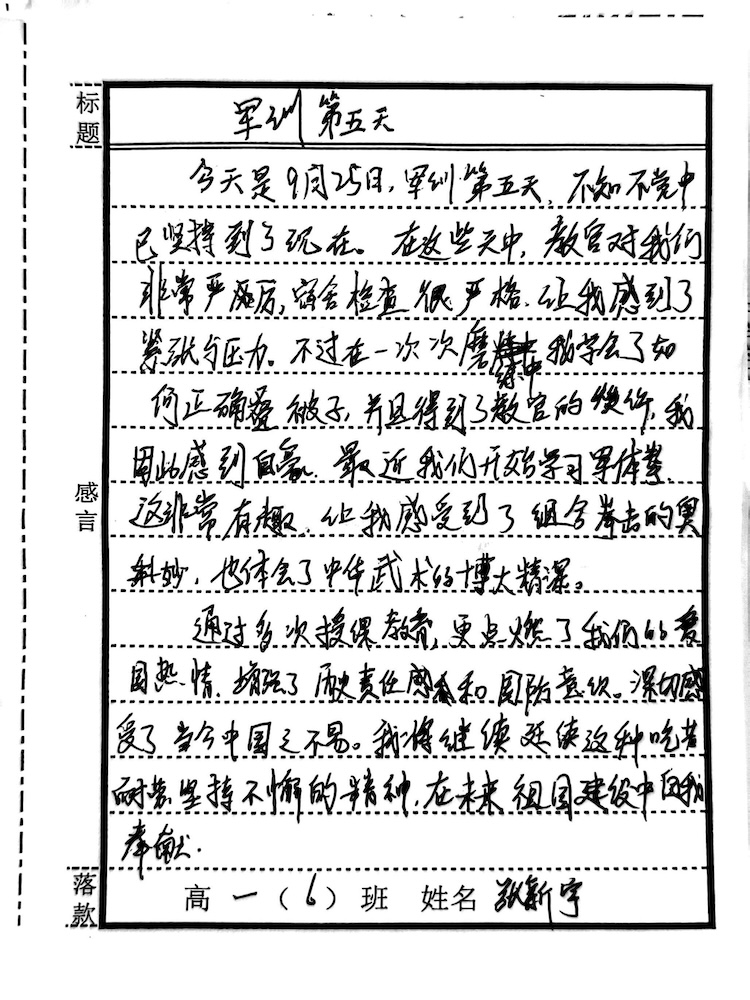 标题
军训第五天
今天是9月25日,军训第五天,不知不觉中
已坚持到了现在。在这些天中,教官对我们
非常严厉,宿舍检查很严格,让我感到了
紧张与压力。不过在一次次磨练中我学会了如
何正确叠被子,并且得到了教官的,我
因此感到自豪。最近我们开始学习军体拳,
这非常有趣,让我感受到了组合拳击的奥
妙,也体会了中华武术的博大精深。
感言
通过多次授课教育,更点燃了我们的爱
国热情,增强了历史责任感和国防意识。深切感
受了当今中国之不易。我将继续延续这种吃苦
耐劳坚持不懈的精神,在未来祖国建设中自我
奉献.
落款
高一(6)班 姓名 张新宇